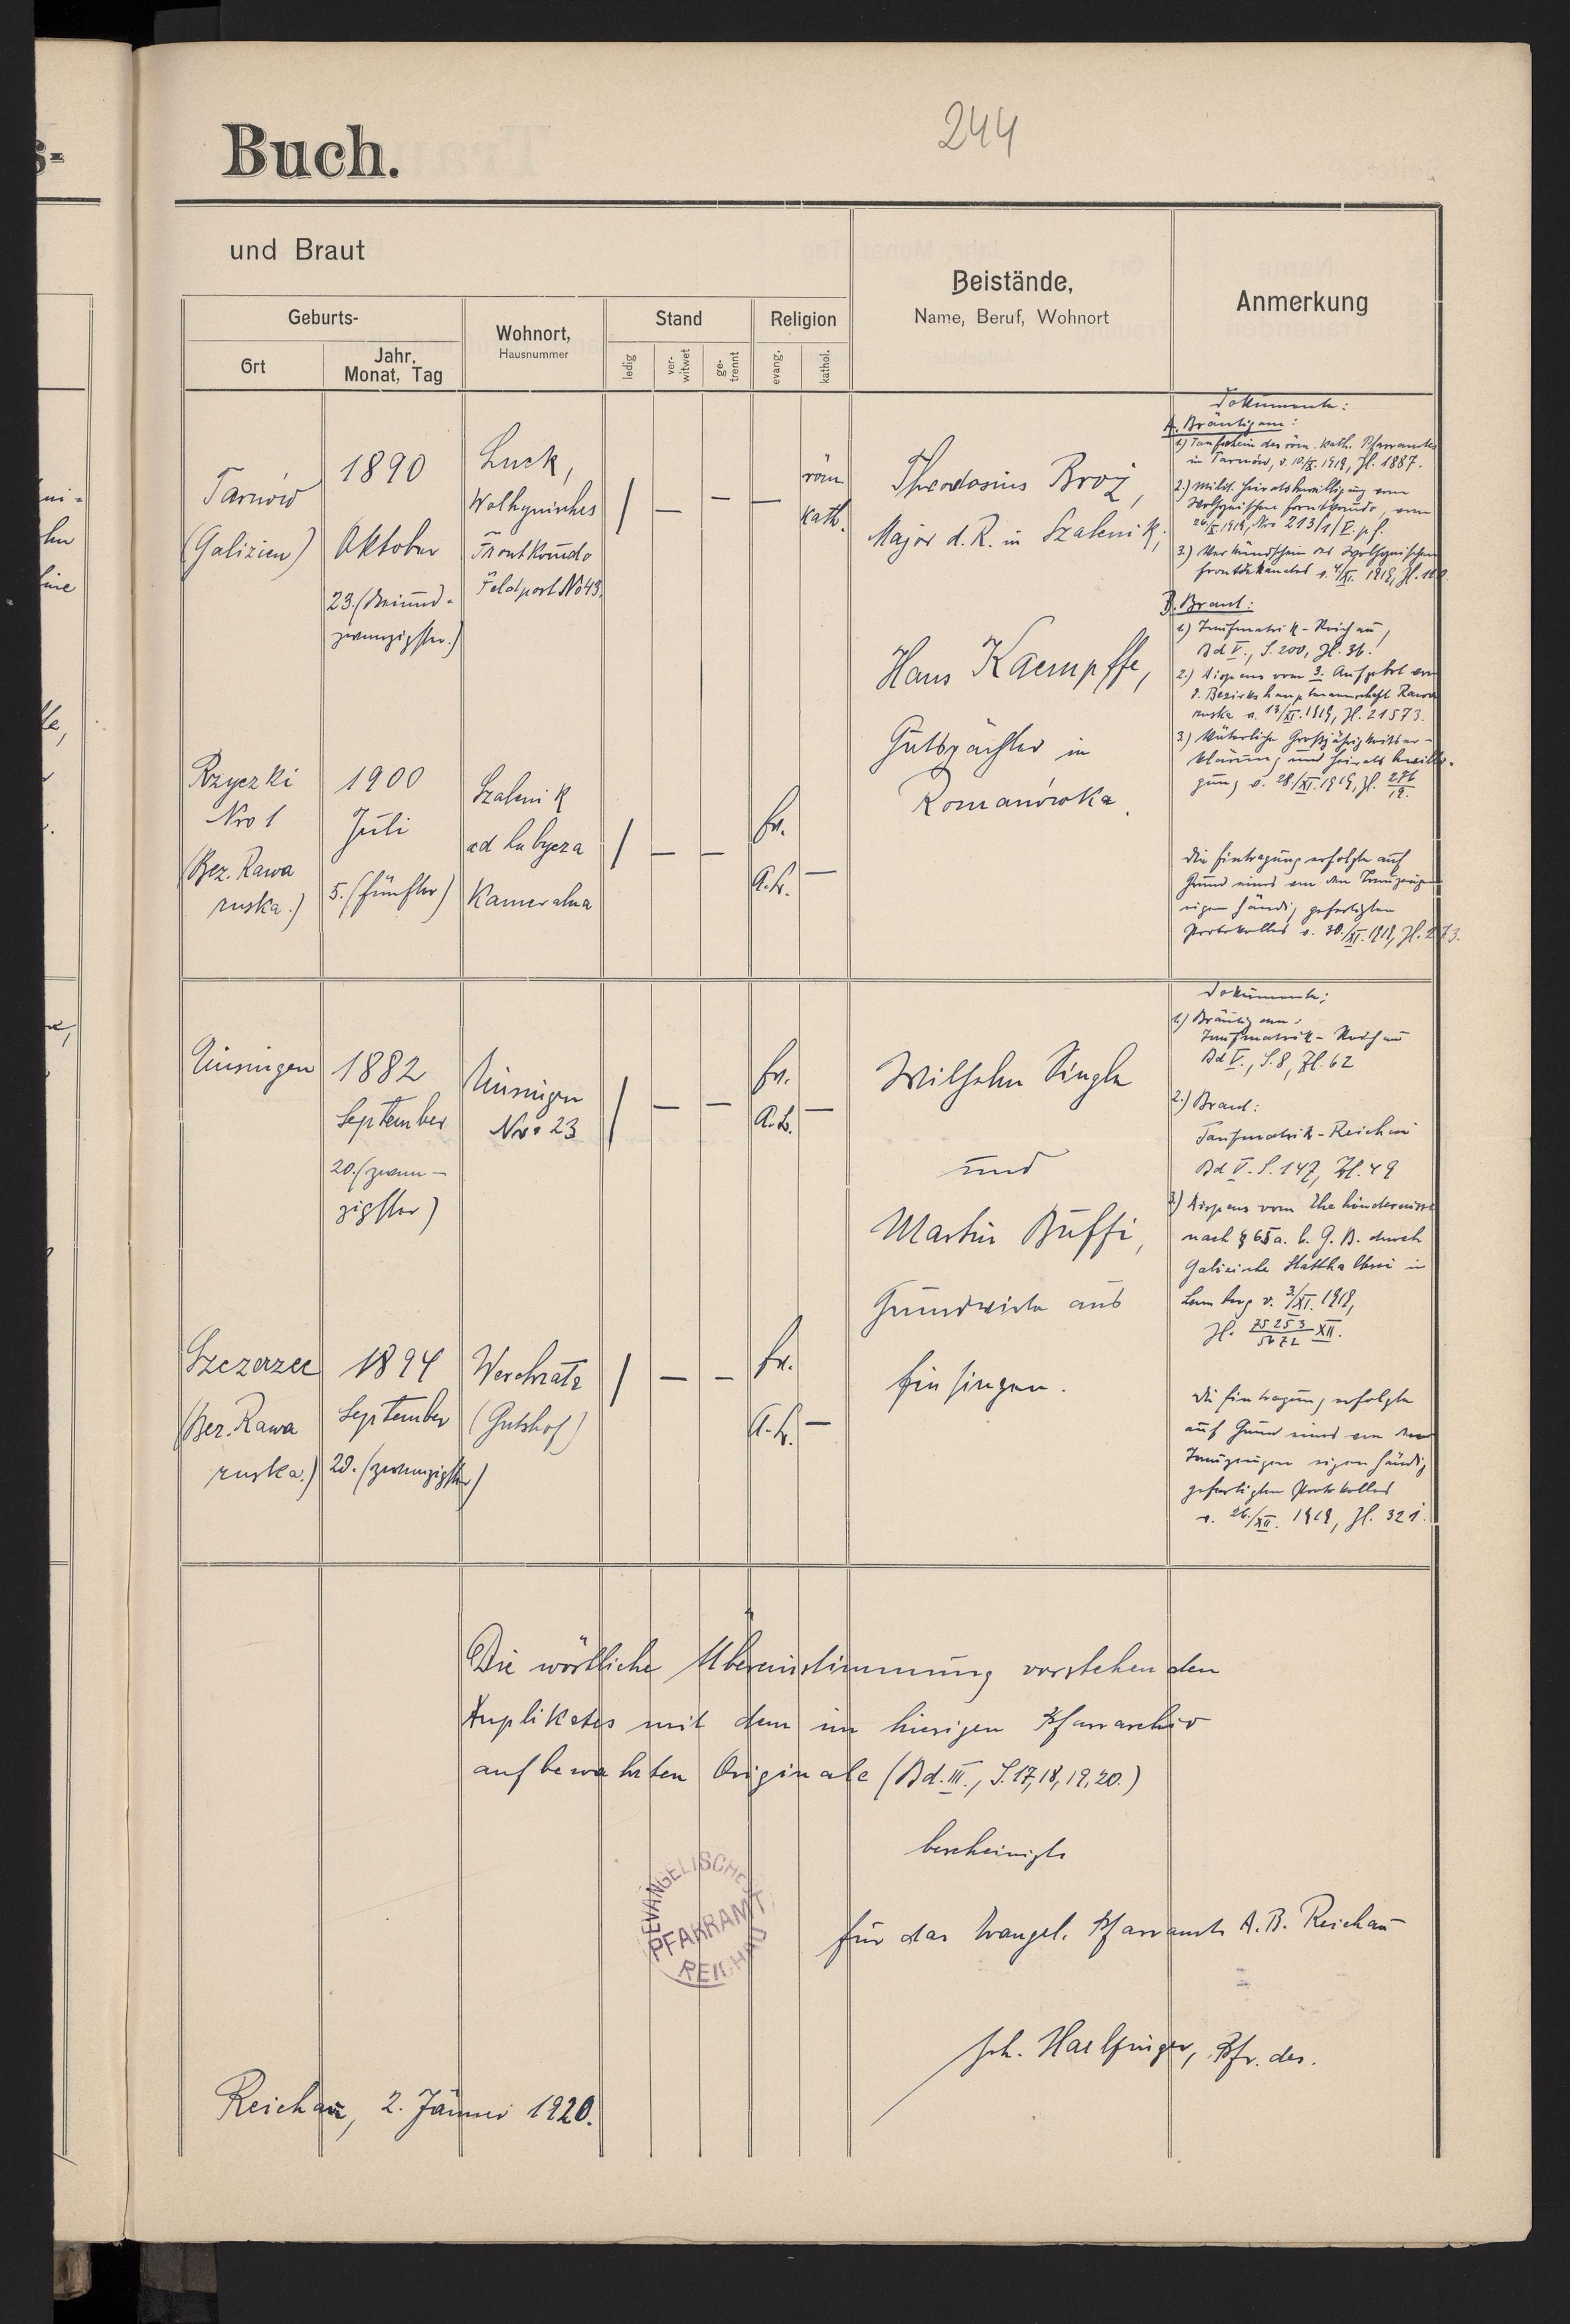 244
Buch.
und Braut
Geburts-
Ort
Jahr,
Monat, Tag
Wohnort,
Hausnummer
Stand
ledig
ver-
witwet
ge-
trennt
Religion
evang.
kathol.
Beistände,
Name, Beruf, Wohnort
Anmerkung
Tarnów
(Galizien)
1890
Oktober
23. (dreiund-
zwanzigster.)
Luck,
Wolhynisches
Frontkom̄do
Feldpost No 43.
| — — —
röm.
kath.
Theodosius Broż,
Major d. R. in Szalenik,
Hans Kaempffe,
Gutspächter in
Romanówka.
Dokumente:
A. Bräutigam:
1.) Taufschein des röm. kath. Pfarramtes
in Tarnów, v. 10/X. 1919, Zl. 1887.
2.) Milit. Heiratsbewilligung vom
Wolhynischen Frontkom̄do, vom
26/X. 1919, Nro 213/1/V. pf.
3.) Verkündschein des Wolhynischen
Frontdekanates v. 4/XI. 1919, Zl.
B. Braut:
1.) Taufmatrik-Reichau,
Bd V., S. 200, Zl. 36.
2.) Dispens vom 3. Aufgebot von
d. Bezirkshauptmannschaft Rawa
ruska v. 13/XI. 1919, Zl. 21573.
3.) Väterliche Großjährigkeitser-
klärung und Heiratsbewilli-
gung v. 28./XI. 1919, Zl. 276/19.
Die Eintragung erfolgte auf
Grund eines von den Trauzeugen
eigenhändig gefertigten
Protokolles v. 30./XI. 1919, Zl. 273.
Rzyczki
Nro 1
(Bez. Rawa
ruska.)
1900
Juli
5. (fünfter)
Szalenik
ad Lubycza
Kameralna
| — —
Ev.
A.B.
—
Einsingen
1882
September
20. (zwan-
zigster)
Einsingen
Nro 23
| — —
Ev.
A.B.
—
Wilhelm Bingle
und
Martin Buffi,
Grundwirte aus
Einsingen.
Dokumente:
1.) Bräutigam:
Taufmatrik-Reichau
Bd V., S. 8, Zl. 62
2.) Braut:
Taufmatrik-Reichau
Bd V. S. 147, Zl. 49
3.) Dispens vom Ehehindernisse
nach § 65 a. b. G. B. durch
Galizische Statthalterei in
Lemberg v. 3/XI. 1918,
Zl. 75253/5672 XII.
Die Eintragung erfolgte
auf Grund eines von den
Trauzeugen eigenhändig
gefertigten Protokolles
v. 26./XII. 1919, Zl. 321.
Szczerzec
(Bez. Rawa
ruska.)
1894
September
20. (zwanzigster)
Werchrata
(Gutshof)
| — —
Ev.
A.B.
—
Die wörtliche Übereinstimmung vorstehenden
Duplikates mit dem im hiesigen Pfarrarchiv
aufbewahrten Originale (Bd. III., S. 17, 18, 19, 20.)
bescheinigt
für das Evangel. Pfarramt A.B. Reichau
EVANGELISCHES
PFARRAMT
REICHAU
Joh. Haelfinger, Pfr. des.
Reichau, 2. Jänner 1920.